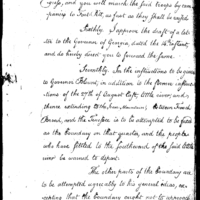 and you will march the said troops by com-
panies to Fort Kit, as fast as they shall be raised
Sixthly. I approve the draft of a let-
ter to the Governor of Georgia, dated the 14th instant,
and do hereby direct you to forward the same.
Seventhly. In the instructions to be given
to Governor Blount, in addition to the former instruc-
tions of the 27th of August last, little river, and
thence extending to the Iron Mountain,
Broad, and the Tugeloe is to be attempted to be fixed
as the boundary on that quarter, and the people
who have settled to the southward of the said little
river be warned to depart.
The other parts of the boundary are
to be attempted agreeably to his general ideas, ex-
cepting that the boundary ought not to approach